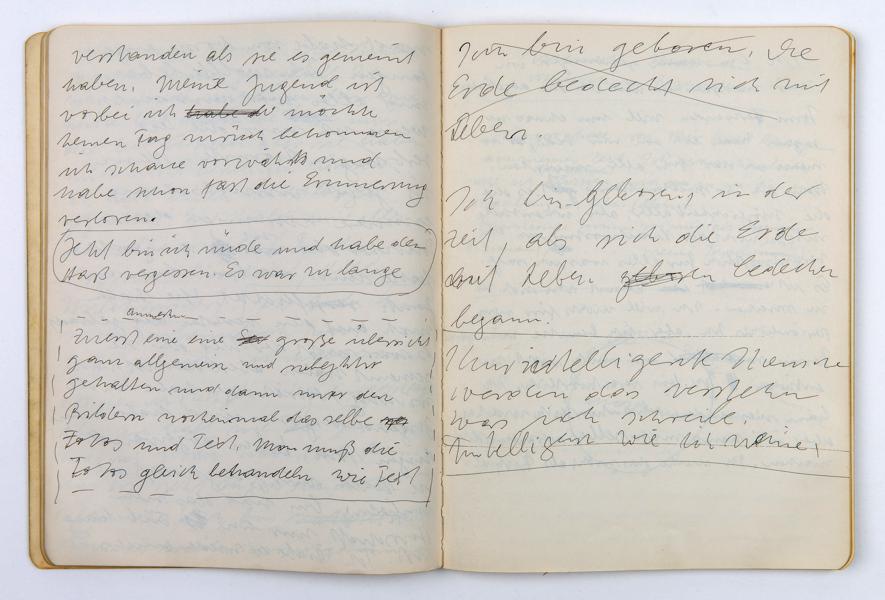 verstanden als sie es gemeint
haben. Meine Jugend ist
vorbei ich habe möchte
keinen Tag zurück bekommen
ich schaue vorwärts und
habe schon fast die Erinnerung
verloren.
Jetzt bin ich müde und habe den
Haß vergessen. Es war zu lange
Zuerst eine eine große übersicht
ganz allgemein und subjektiv
gehalten und dann unter den
Bildern nocheinmal das selbe
Fotos und Text. Man muß die
Fotos gleich behandeln wie Text
Ich bin geboren. Die
Erde bedeckt sich mit
Leben.
Ich bin geboren in der
Zeit, als sich die Erde
mit Leben bedecken
begann
Nur intelligente Menschen
werden das verstehen
was ich schreibe.
Intelligent wie ich meine.